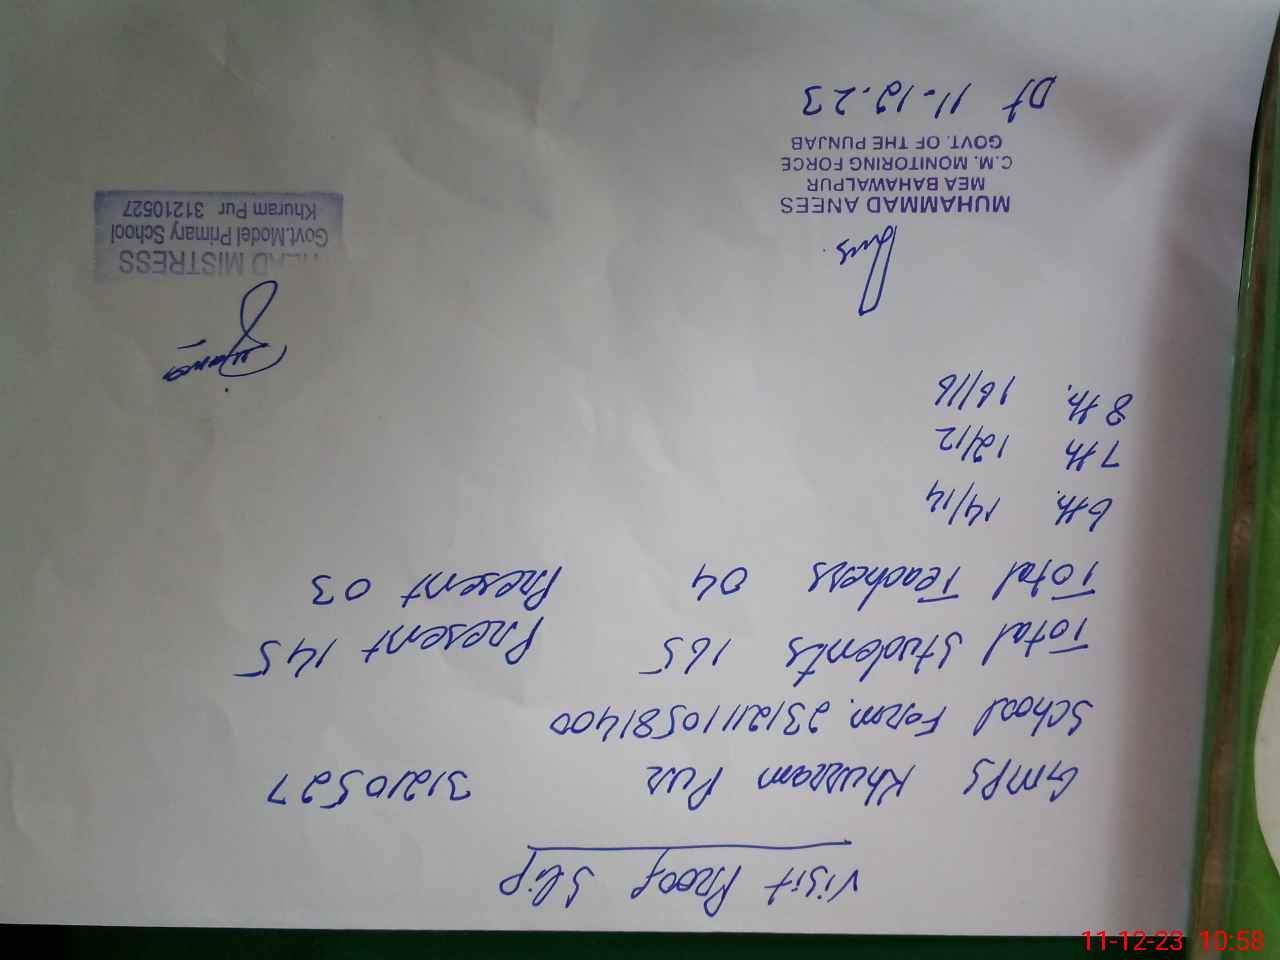 Visit Proof Slip
GMPS Khurram Pur 31210527
School Form. 23121110581400
Total Students 165 Present 145
Total Teachers 04 Present 03
6th. 14/14
7th 12/12
8th. 16/16
MUHAMMAD ANEES
MEA BAHAWALPUR
C.M. MONITORING FORCE
GOVT. OF THE PUNJAB
Dt 11.12.23
HEAD MISTRESS
Govt.Model Primary School
Khuram Pur 31210527
11-12-23 10:58